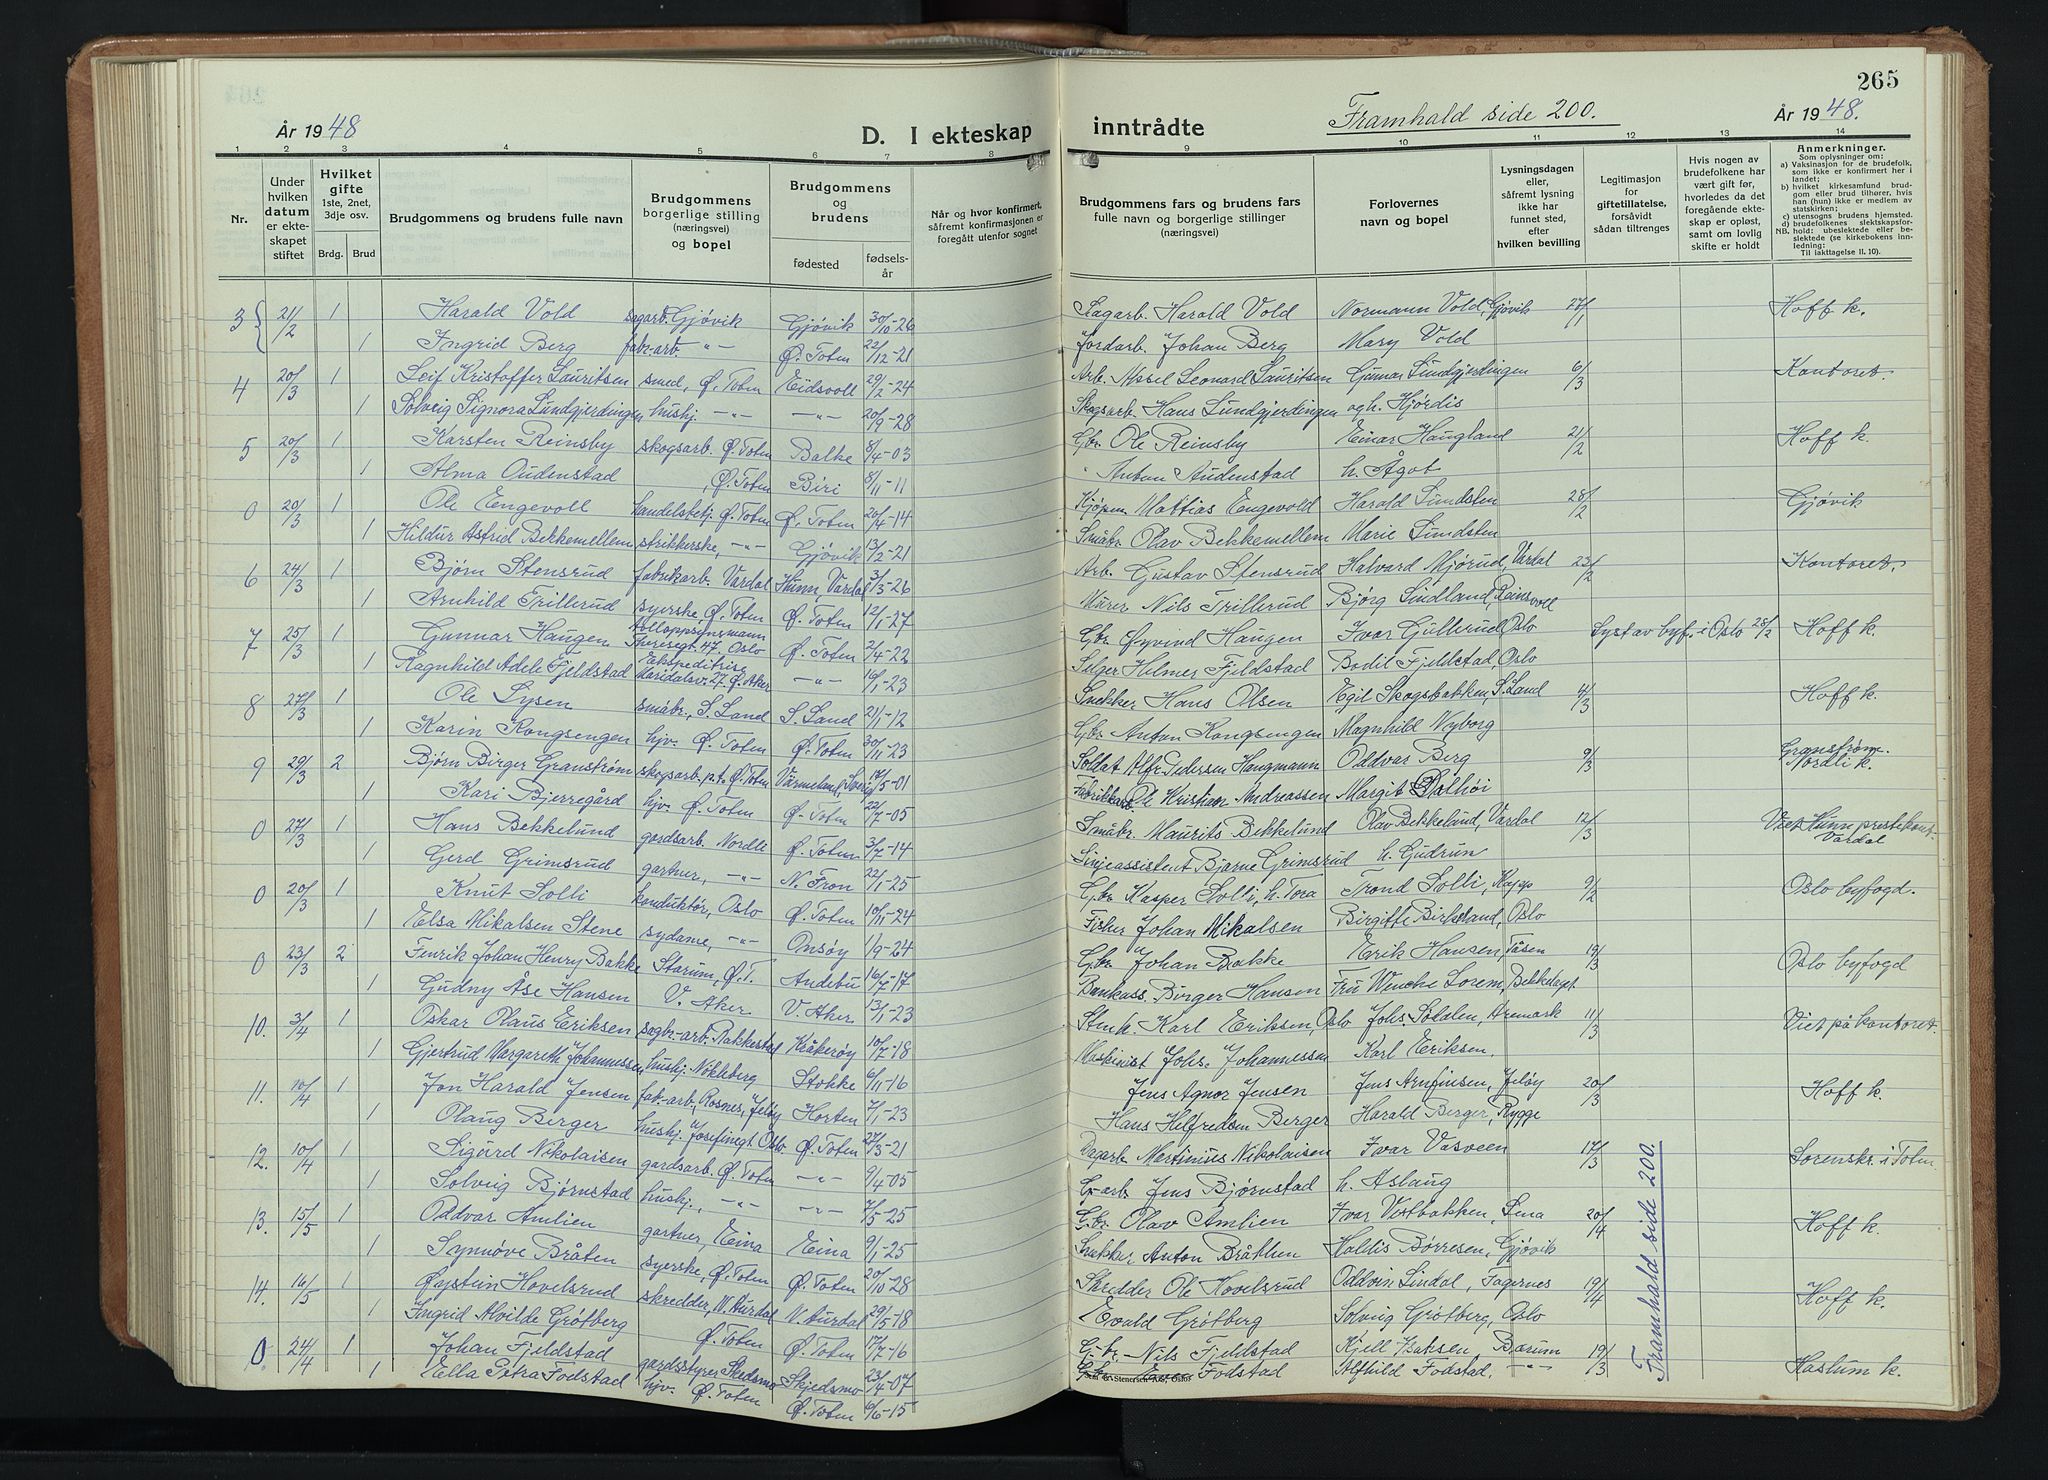 265
År 1948
D. I ekteskap inntrådte
Framhald side 200.
År 1948.
1 2 3 4 5 6 7 8 9 10 11 12 13 14
Nr.
Under hvilken datum er ekteskapet stiftet
Hvilket gifte 1ste, 2net, 3dje osv.
Brdg. Brud
Brudgommens og brudens fulle navn
Brudgommens borgerlige stilling (næringsvei) og bopel
Brudgommens og brudens
fødested
fødselsår
Når og hvor konfirmert, såfremt konfirmasjonen er foregått utenfor sognet
Brudgommens fars og brudens fars fulle navn og borgerlige stillinger (næringsvei)
Forlovernes navn og bopel
Lysningsdagen eller, såfremt lysning ikke har funnet sted, efter hvilken bevilling
Legitimasjon for giftetillatelse, forsåvidt sådan tiltrenges
Hvis nogen av brudefolkene har vært gift før, hvorledes da det foregående ekteskap er opløst, samt om lovlig skifte er holdt
Anmerkninger.
Som oplysninger om:
a) Vaksinasjon for de brudefolk, som ikke er konfirmert her i landet;
b) hvilket kirkesamfund brudgom eller brud tilhører, hvis han (hun) ikke er medlem av statskirken;
c) utensogns brudens hjemsted.
d) brudefolkenes slektskapsforhold: ubeslektede eller beslektede (se kirkebokens innledning: Til iakttagelse II. 10).
NB.
3 21/2 1 Harald Vold sagarb. Gjøvik Gjøvik 30/10-26 Sagarb. Harald Vold Normann Vold, Gjøvik 27/1 Hoff k.
1 Ingrid Berg fabr.arb. -"- Ø. Toten 22/12-21 Jordarb. Johan Berg Mary Vold
4 20/3 1 Leif Kristoffer Lauritsen smed, Ø. Toten Eidsvoll 29/2-24 Arb. Aksel Leonard Lauritsen Gunnar Lundgjerdingen 6/3 Kontoret.
1 Solveig Signora Lundgjerdingen hushj. -"- -"- 20/9-28 Skogsarb. Hans Lundgjerdingen og h. Hjørdis
5 20/3 1 Karsten Reinsby skogsarb. Ø. Toten Balke 8/4-03 Gbr. Ole Reinsby Einar Haugland 21/2 Hoff k.
1 Alma Oudenstad , Ø. Toten Biri 8/11-11 " Anton Audenstad h. Ågot
0 20/3 1 Ole Engevoll handelsbetj. Ø. Toten Ø. Toten 20/4-14 Kjøpm. Mattias Engevold Harald Sundsten 28/2 Gjøvik
1 Hildur Astrid Bekkemellem strikkerske, -"- Gjøvik 13/2-21 Småbr. Olav Bekkemellem Marie Sundsten
6 24/3 1 Bjørn Stensrud fabrikarb. Vardal Hunn, Vardal 3/3-26 Arb. Gustav Stensrud Halvard Mjørud, Vardal 23/2 Kontoret.
1 Arnhild Trillerud syerske, Ø. Toten Ø. Toten 12/1-27 Murer Nils Trillerud Bjørg Lindland, Reinsvoll
7 25/3 1 Gunnar Haugen Theresegt. 47. Oslo Ø. Toten 2/4-22 Gbr. Øyvind Haugen Ivar Gullerud Oslo Lyst av byf. i Oslo 28/2 Hoff k.
1 Ragnhild Adele Fjeldstad Ekspeditrise Maridalsv. 27. Ø. Aker -"- 16/1-23 Selger Hilmer Fjeldstad Bodil Fjeldstad, Oslo
8 27/3 1 Ole Lysen småbr., S. Land S. Land 21/1-12 Snekker Hans Olsen Egil Skogsbakken, S. Land 4/3 Hoff k.
1 Karin Kongsengen hjv. Ø. Toten Ø. Toten 30/11-23 Gbr. Anton Kongsengen Magnhild Nyborg
9 29/3 2 Bjørn Birger Granstrøm skogsarb. p.t. Ø. Toten Värmeland, Sverig 17/5-01 Soldat Alfr. Pedersen Hangmann Oddvar Berg 9/3 Granstrøm. Nordli k.
1 Kari Bjerregård hjv. Ø. Toten Ø. Toten 22/7-05 Fabrikkarb. Ole Kristian Andreassen Margit Dalhøi
0 27/3 1 Hans Bekkelund gardsarb. Nordli Ø. Toten 3/7-14 Småbr. Maurits Bekkelund Olav Bekkeland, Vardal 12/3 Viet Hunn prestekont. Vardal
1 Gerd Grimsrud gartner, -"- N. Fron 22/1-25 Linjeassistent Bjarne Grimsrud h. Gudrun
0 20/3 1 Knut Solli konduktør, Oslo Ø. Toten 10/11-24 Gbr. Kasper Solli, h. Tora Trond Solli, Kapp 9/2 Oslo byfogd.
1 Elsa Mikalsen Stene sydame, -"- Onsøy 1/9-24 Fisker Johan Mikalsen Birgitte Birkeland, Oslo
0 23/3 2 Fenrik Johan Henry Bakke Starum, Ø.T. Andebu 16/7-17 Gbr. Johan Bakke Erik Hansen, Tåsen 19/3 Oslo byfogd
1 Gudny Åse Hansen V. Aker V. Aker 13/1-23 Bankass. Birger Hansen Fru Wenche Lorem, Bekkelaget
10. 3/4 1 Oskar Olaus Eriksen sagbr.-arb. Bakkestad Kråkerøy 10/7-18 Stenh. Karl Eriksen, Oslo Johs. Sødalen, Øremark 11/3 Viet på kontoret.
1 Gjertrud Margareth Johannessen hushj. Nøkleberg Stokke 6/11-16 Maskinist Johs. Johannessen Karl Eriksen.
11. 10/4 1 Jon Harald Jensen fak.-arb., Rosnes, Jeløy Horten 7/1-23 Jens Agnor Jensen Jens Arnfinsen, Jeløy 20/3 Hoff k.
1 Olaug Berger hushj. Josefinegt. Oslo Ø. Toten 27/3-21 Hans Helfredsen Berger Harald Berger, Rygge
12. 10/4 1 Sigurd Nikolaisen gardsarb. Ø. Toten -"- 9/4-05 Dagarb. Martinius Nikolaisen Ivar Vasveen 17/3 Sorenskr. i Toten
1 Solveig Bjørnstad hushj. -"- -"- 7/5-25 G.arb. Jens Bjørnstad h. Aslaug
13. 15/5 1 Oddvar Amlien gartner, Eina Eina 9/1-25 Gbr. Olav Amlien Ivar Vestbakken, Lena 20/4 Hoff k.
1 Synnøve Bråten syerske, Ø. Toten Ø. Toten 20/10-28 Snekker Anton Bråthen Halldis Børresen, Gjøvik
14. 16/5 1 Øystein Hovelsrud skredder, N. Aurdal N. Aurdal 29/5-18 Skredder Ole Hovelsrud Oddvin Lindal, Fagernes 19/4 Hoff k.
1 Ingrid Alvilde Grøtberg Ø. Toten Ø. Toten 17/7-16 Evald Grøtberg Solveig Grøtberg, Oslo
0. 24/4 1 Johan Fjeldstad gardsstyrer Skedsmo Skjedsmo 23/4-07 G.br. Nils Fjeldstad Kjell Isaksen Bærum 19/3 Haslum k.
1 Ella Petra Fodstad hjv. Ø. Toten Ø. Toten 6/6-15 Fodstad Alfhild Fodstad. -"-
Framhald side 200.